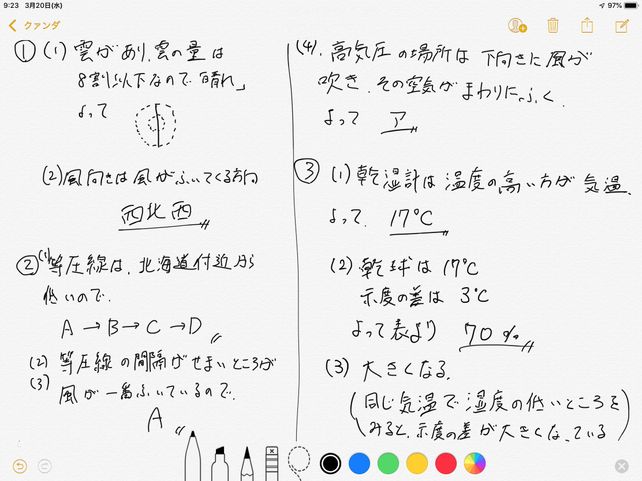 9:23 3月20日(水)
97%
クァンダ
① (1) 雲があり、雲の量は
8割以下なので「晴れ」
よって
(2) 風向きは風がふいてくる方向
西北西
② (1) 等圧線は、北海道付近から
低いので、
A→B→C→D
(2) 等圧線の間隔がせまいところが
(3) 風が一番ふいているので、
A
(4). 高気圧の場所は下向きに風が
吹き、その空気がまわりにふく
よって ア
③ (1) 乾湿計は温度の高い方が気温、
よって、17℃
(2) 乾球は17℃
示度の差は3℃
よって表より 70%
(3) 大きくなる、
(同じ気温で湿度の低いところを
みると、示度の差が大きくなっている)